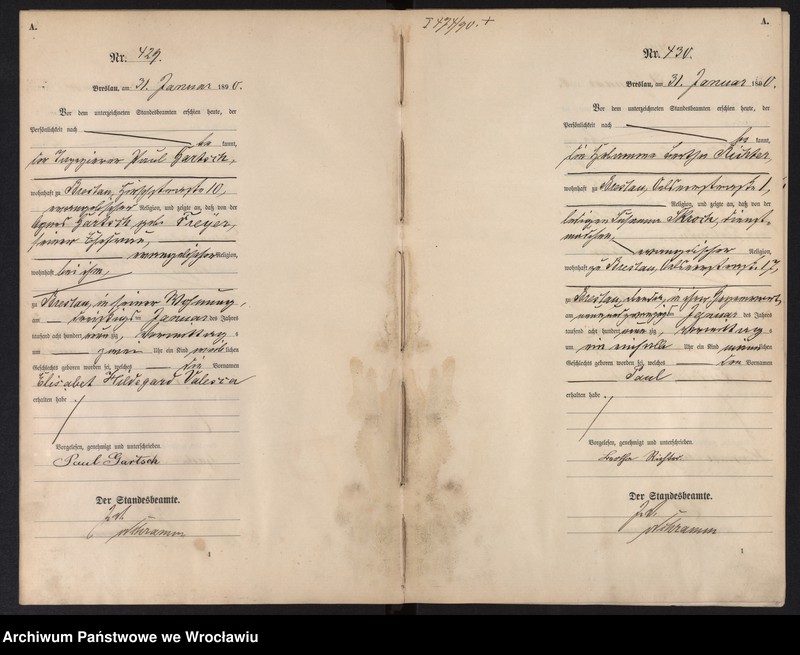 A.
Nr. 429.
Breslau, am 31. Januar 1890.
Vor dem unterzeichneten Standesbeamten erschien heute, der
Persönlichkeit nach
be kannt,
der Tapezierer Paul Gartsch,
wohnhaft zu Breslau, 10,
evangelischer Religion, und zeigte an, daß von der
Agnes Gartsch geb. Freyer,
seiner Ehefrau,
evangelischer Religion,
wohnhaft bei ihm,
zu Breslau, in seiner Wohnung,
am dreißigsten Januar des Jahres
tausend acht hundert neunzig, Vormittags
um zwei Uhr ein Kind weiblichen
Geschlechts geboren worden sei, welches die Vornamen
Elisabet Hildegard Valesca
erhalten habe.
Vorgelesen, genehmigt und unterschrieben.
Paul Gartsch
Der Standesbeamte.
Schramm
1
I 474/90. +
A.
Nr. 430.
Breslau, am 31. Januar 1890.
Vor dem unterzeichneten Standesbeamten erschien heute, der
Persönlichkeit nach
be kannt,
die Hebamme Bertha Richter,
wohnhaft zu Breslau, 1,
Religion, und zeigte an, daß von der
ledigen Susanna Skroch, Dienst-
mädchen,
evangelischer Religion,
wohnhaft zu Breslau, 17,
zu Breslau, in ihrer Gegenwart,
am neunundzwanzigsten Januar des Jahres
tausend acht hundert neunzig, Vormittags
um ein einhalb Uhr ein Kind männlichen
Geschlechts geboren worden sei, welches den Vornamen
Paul
erhalten habe.
Vorgelesen, genehmigt und unterschrieben.
Bertha Richter.
Der Standesbeamte.
Schramm
1
Archiwum Państwowe we Wrocławiu